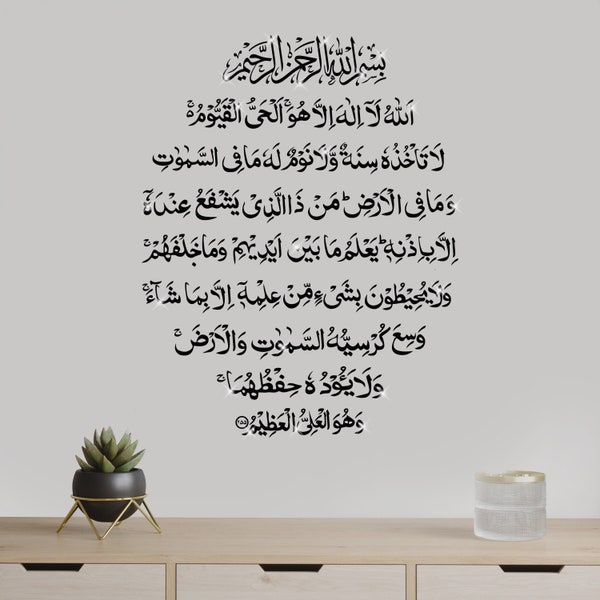 بِسْمِ اللهِ الرَّحْمٰنِ الرَّحِيْمِ
اَللهُ لَآ اِلٰهَ اِلَّا هُوَ ۚ اَلْحَيُّ الْقَيُّوْمُ ۚ
لَا تَاْخُذُهٗ سِنَةٌ وَّلَا نَوْمٌ لَهٗ مَا فِى السَّمٰوٰتِ
وَمَا فِى الْاَرْضِ ؕ مَنْ ذَا الَّذِىْ يَشْفَعُ عِنْدَهٗٓ
اِلَّا بِاِذْنِهٖ ؕ يَعْلَمُ مَا بَيْنَ اَيْدِيْهِمْ وَمَا خَلْفَهُمْ ۚ
وَلَا يُحِيْطُوْنَ بِشَىْءٍ مِّنْ عِلْمِهٖٓ اِلَّا بِمَا شَآءَ ۚ
وَسِعَ كُرْسِيُّهُ السَّمٰوٰتِ وَالْاَرْضَ ۚ
وَلَا يَـُٔوْدُهٗ حِفْظُهُمَا ۚ
وَهُوَ الْعَلِىُّ الْعَظِيْمُ ﴿۲۵۵﴾